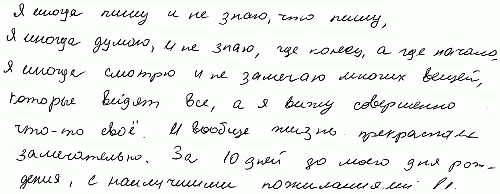 Я иногда пишу и не знаю, что пишу,
Я иногда думаю, и не знаю, где конец, а где начало,
Я иногда смотрю и не замечаю многих вещей,
которые видят все, а я вижу совершенно
что-то своё. И вообще жизнь прекрастая
замечательно. За 10 дней до моего дня рож-
дения, с наилучшими пожиланиями